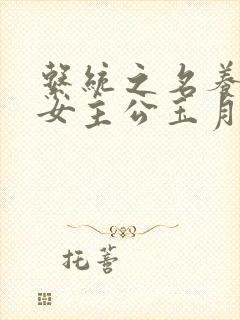 繫統之名養
女主公玉月
托